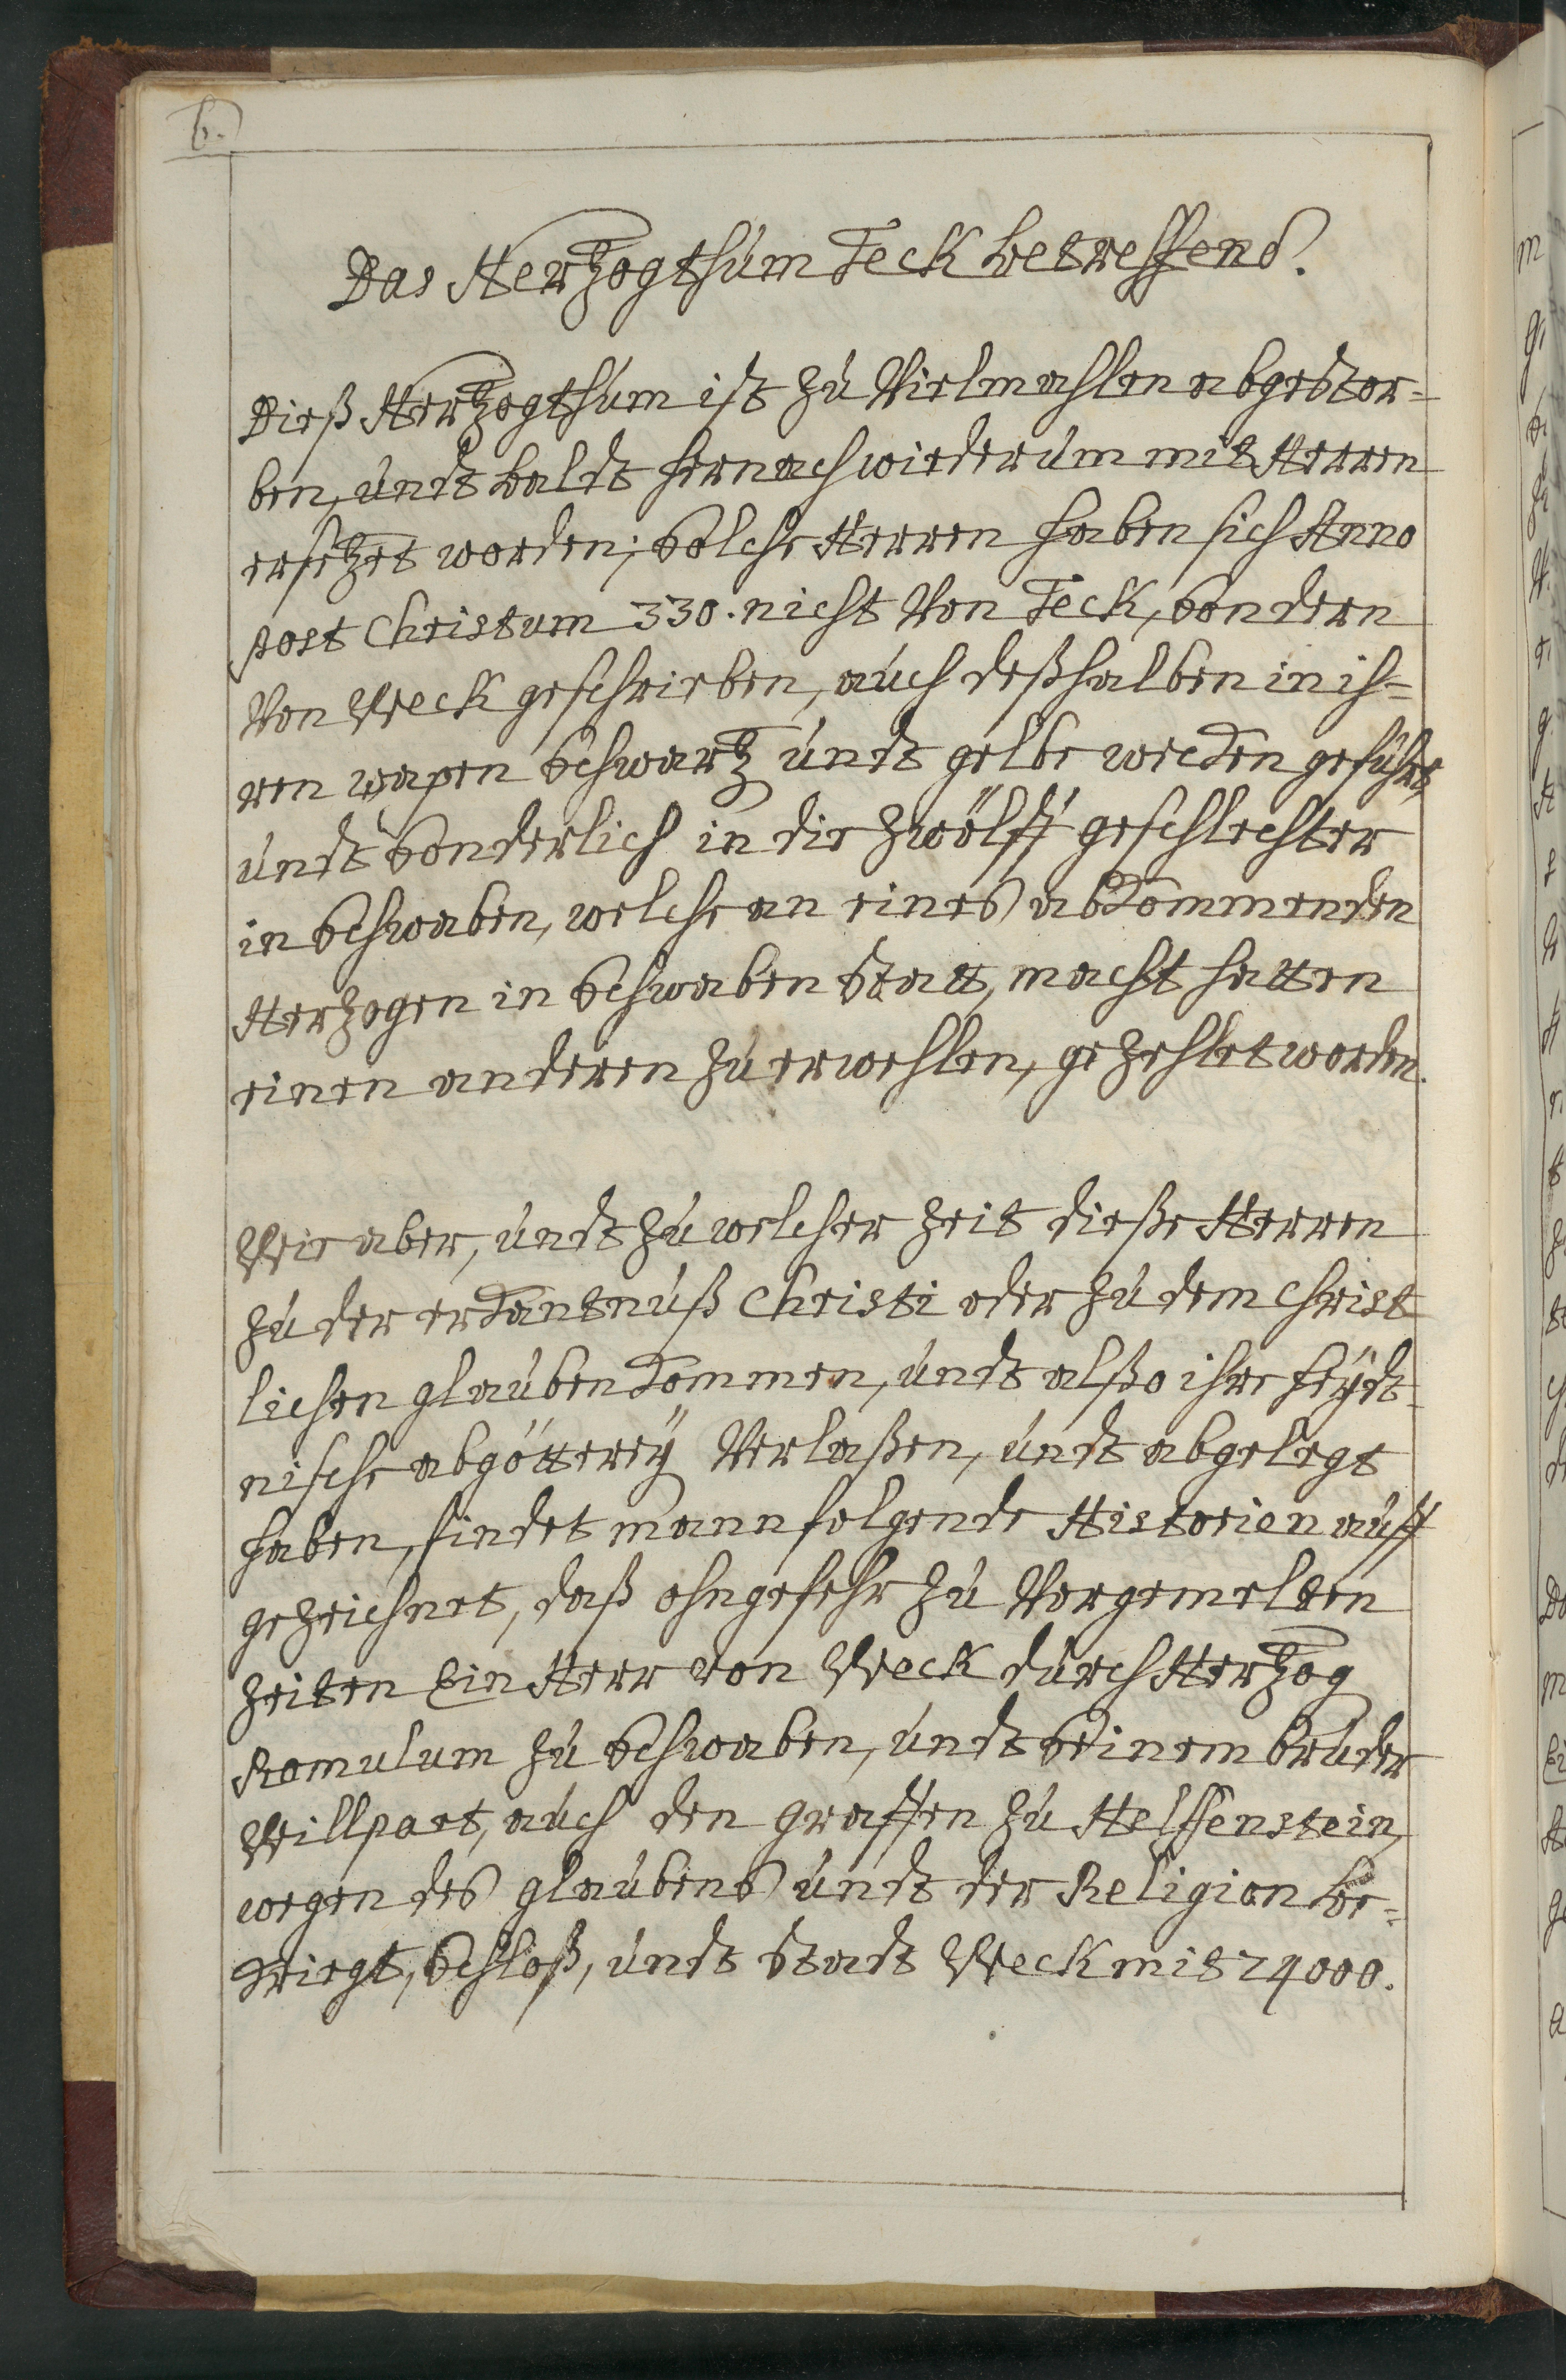 6.
Das Hertzogthum Teck betreffend.
Dieß Hertzogthum ist zu Vielmahlen abgestor=
ben, undt baldt hernach wiederum mit Herren
ersetzet worden; Solche Herren haben sich Anno
post Christum 330. nicht Von Teck, Sondern
Von Weck geschrieben, auch deßhalben in ih=
ren wapen Schwartz undt gelbe wecken geführt,
undt Sonderlich in die zwölff geschlechter
in Schwaben, welche an eines abkommenden
Herzogen in Schwaben Statt, macht hatten
einen anderen zu erwehlen, gezehlet worden.
Wie aber, undt zu welcher zeit dieße Herren
zu der erkantnuß Christi oder zu dem Christ
lichen glauben kommen, undt alßo ihre heydt=
nische abgötterey Verlaßen, undt abgelegt
haben, findet mann folgende Historien auff
gezeichnet, daß ohngefehr zu Vorgemelten
zeiten Ein Herr von Weck durch Hertzog
Romulum zu Schwaben, undt Seinem bruder
Willpart, auch den graffen zu Helffenstein,
wegen des glaubens undt der Religion be=
kriegt, Schloß, undt Stadt Weck mit 24000.